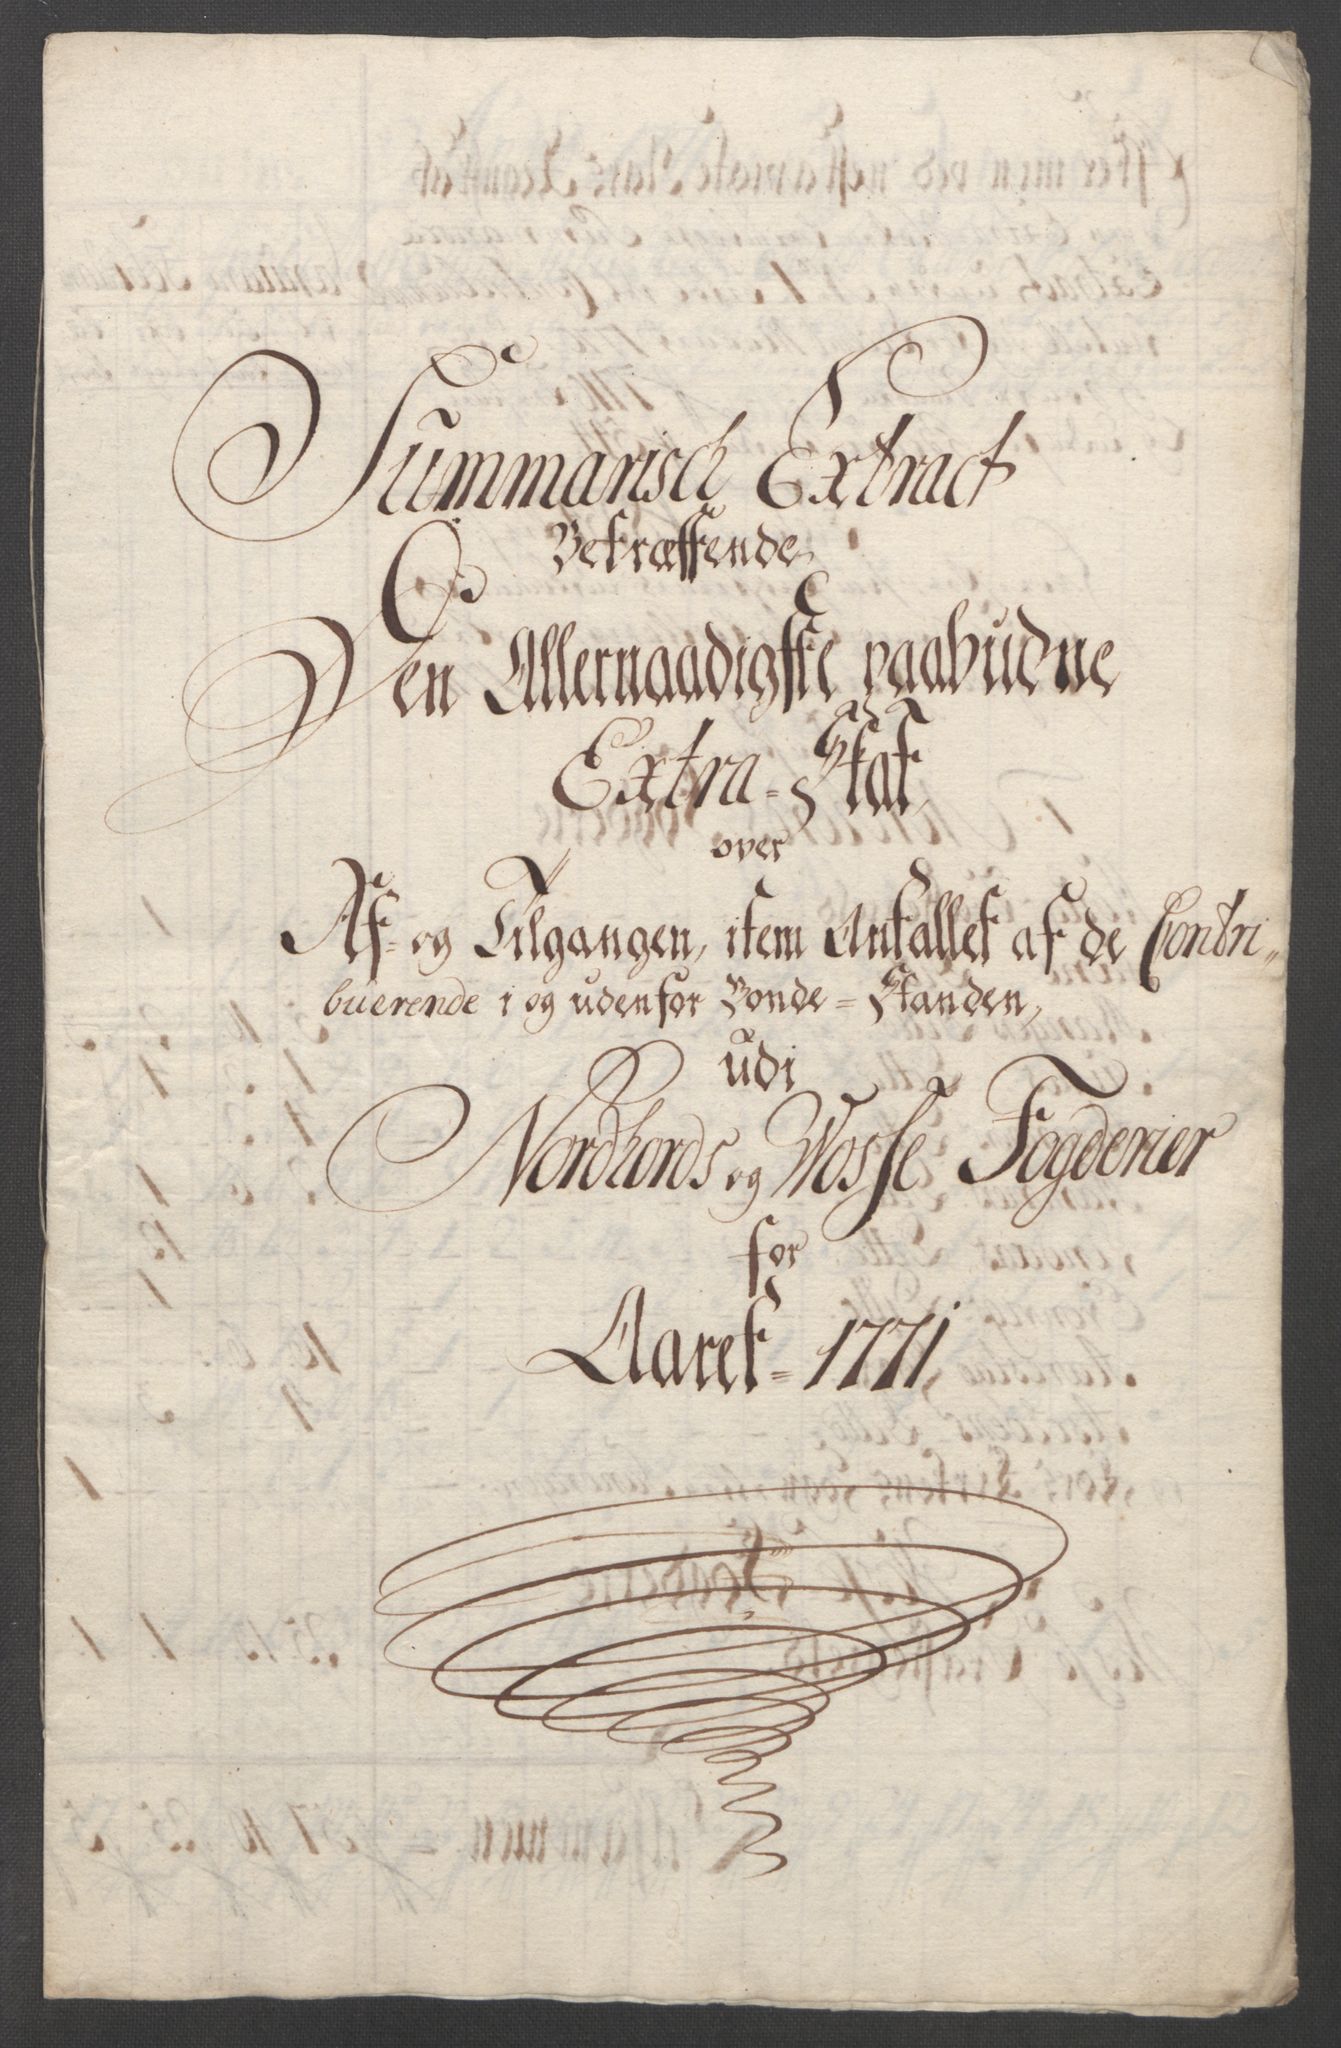 Summarisch Extract
Betræffende
Den Allernaadigste paabudne
Extra-Skat,
over
Af- og Tilgangen, item Antallet af de Contri„
buerende i og udenfor Bonde-Standen,
udi
Nordhords og Wosse Fogderier
for
Aaret-1771